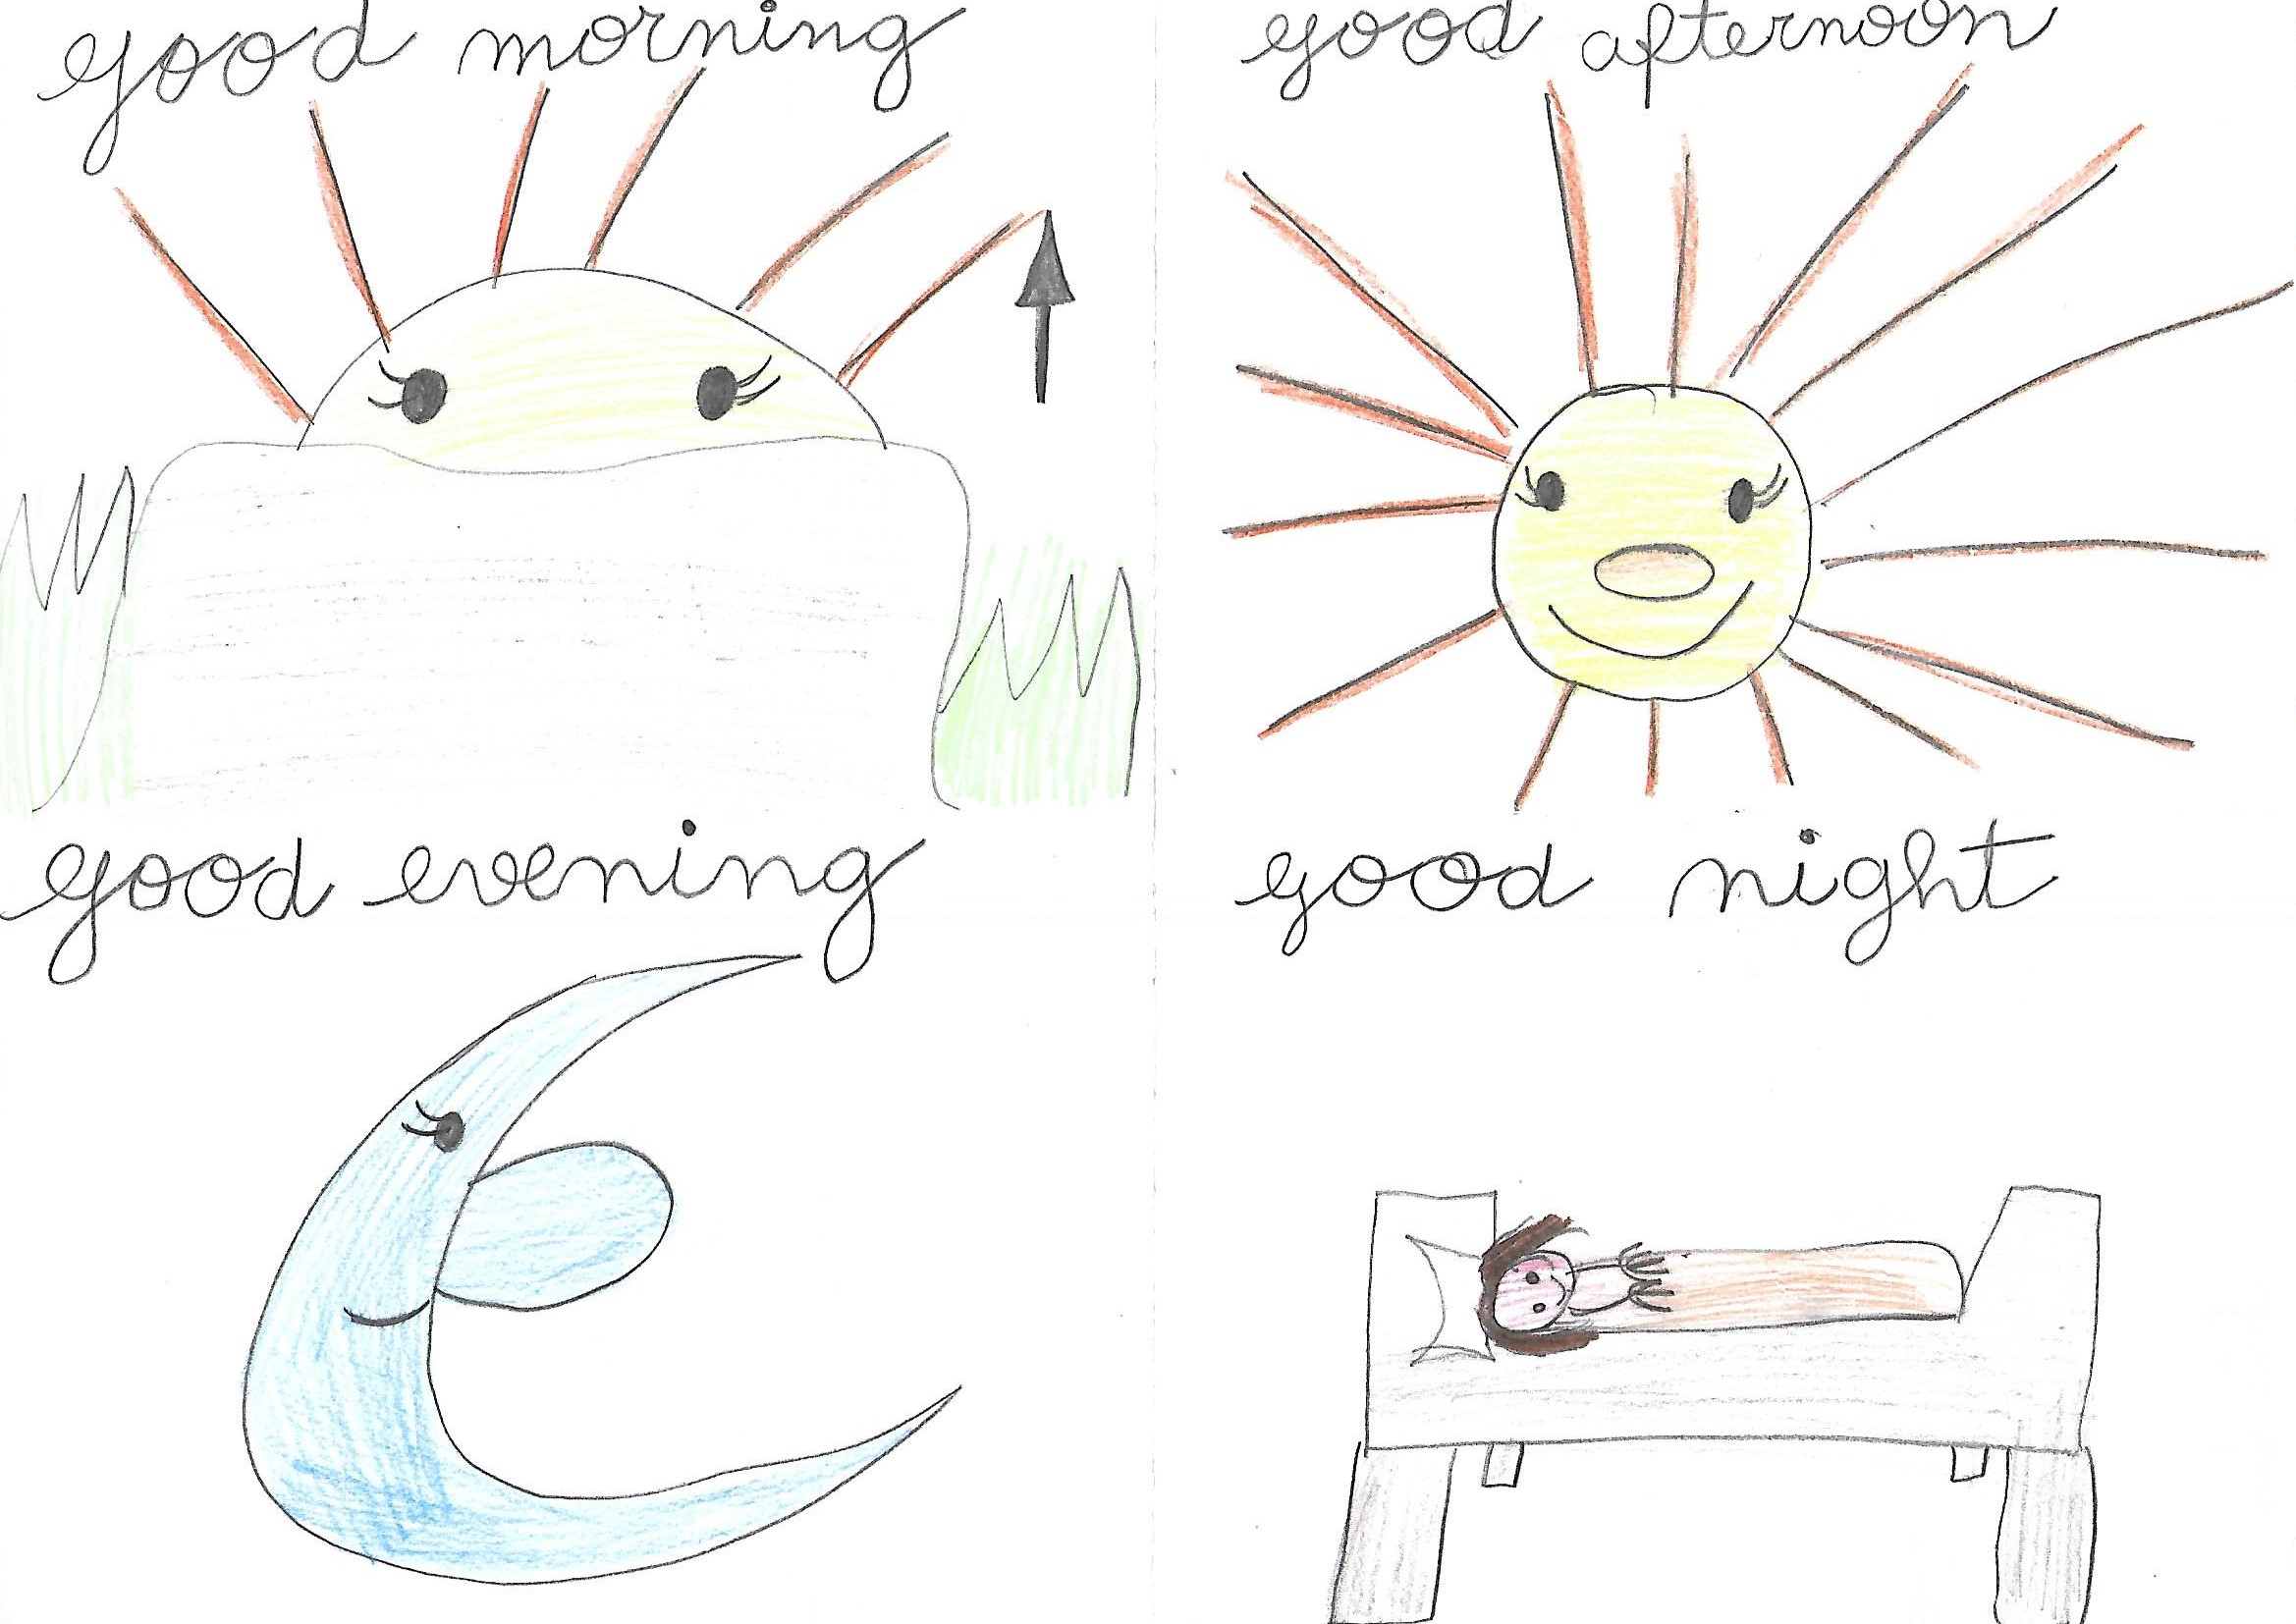 good morning
good afternoon
good evening
good night